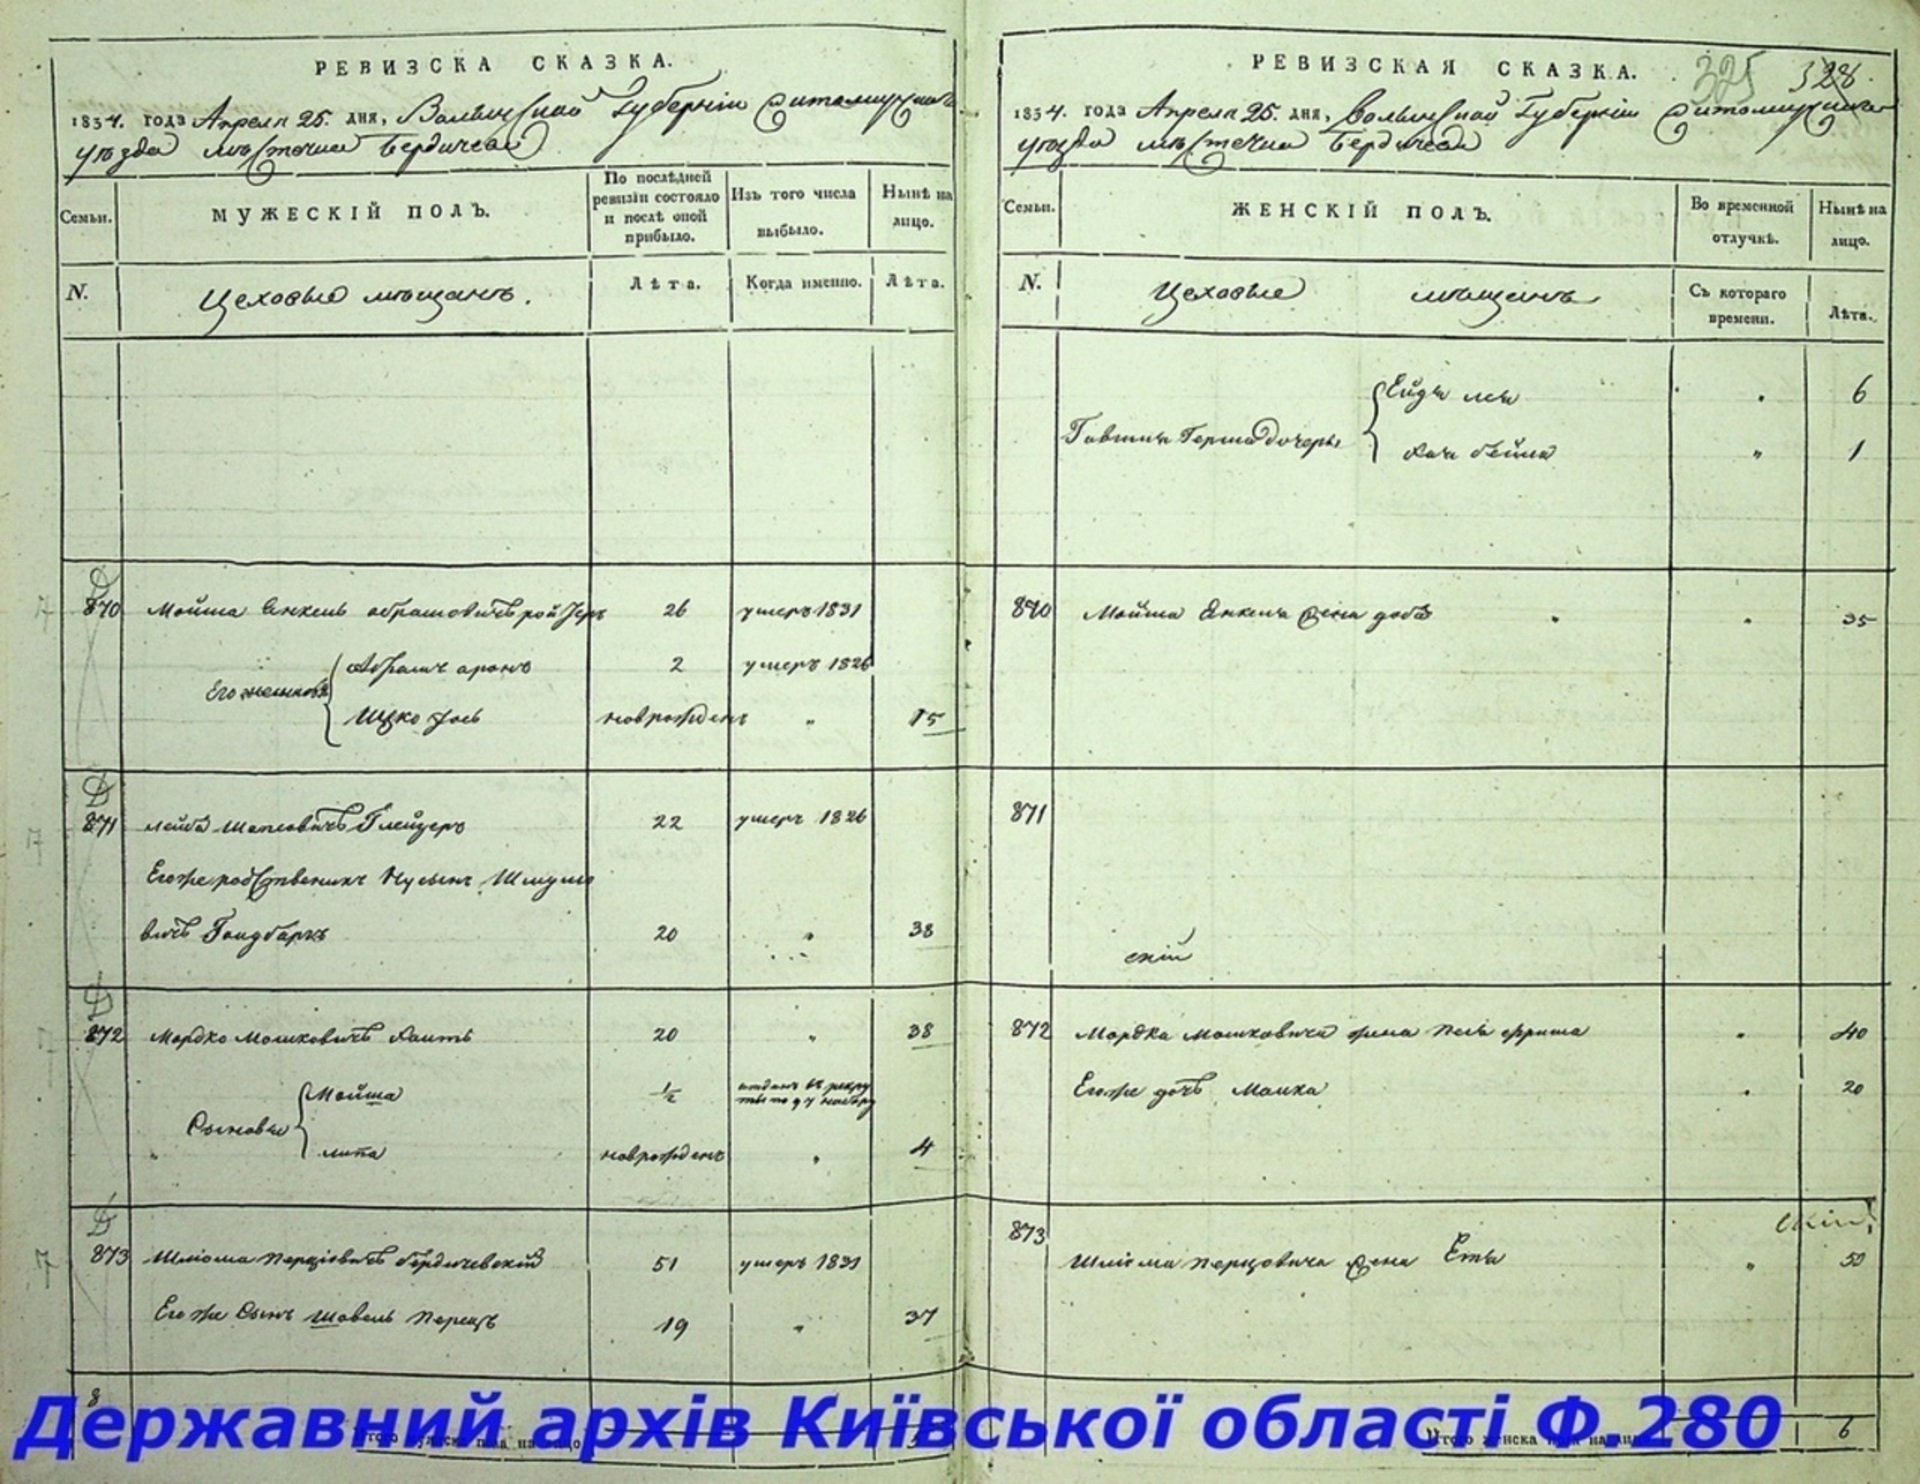 РЕВИЗСКА СКАЗКА.
1834. года Апреля 25. дня, Волынской Губернии Житомирскаго
уѣзда мѣстечка Бердичева
Семьи.
МУЖЕСКІЙ ПОЛЪ.
По послѣдней ревизіи состояло и послѣ оной прибыло.
Изъ того числа выбыло.
Нынѣ на лицо.
N.
Цеховые мѣщанъ.
Лѣта.
Когда именно.
Лѣта.
870 Мойша Янкель Абрамовичъ 26 умеръ 1831
Его
Абрамъ Аронъ 2 умеръ 1826
Ицко новорожденъ " 15
871 Лейба Шаповичъ Глейзеръ 22 умеръ 1826
Егоже родственникъ Нусынъ Шмуло
вичъ 20 " 38
872 Мордко Мошковичъ 20 " 38
Сыновья
Мойша 1/2 отданъ въ рекру
ты
Липа новорожденъ " 4
873 Шлiома Перцовичъ Бердичевскій 51 умеръ 1831
Его же Сынъ Шовель Перецъ 19 " 37
8
Итого мужеска пола на лицо
РЕВИЗСКАЯ СКАЗКА.
325 328.
1834. года Апреля 25. дня, Волынской Губерніи Житомирскаго
уѣзда мѣстечка Бердичева
Семьи.
ЖЕНСКІЙ ПОЛЪ.
Во временной отлучкѣ.
Нынѣ на лицо.
N.
Цеховые мѣщанъ
Съ котораго времени.
Лѣта.
Герша дочери
Ейдя Лея " 6
Хая Бейла " 1
870 Мойша Янкеля жена Доба " 35
871
скій
872 Мордка Мошковича жена Песя Фрима " 40
Егоже дочь Малка " 20
873
Шлiома Перцовича жена Етя " 50
Итого женска пола на лицо 6
Державний архів Київської області Ф.280